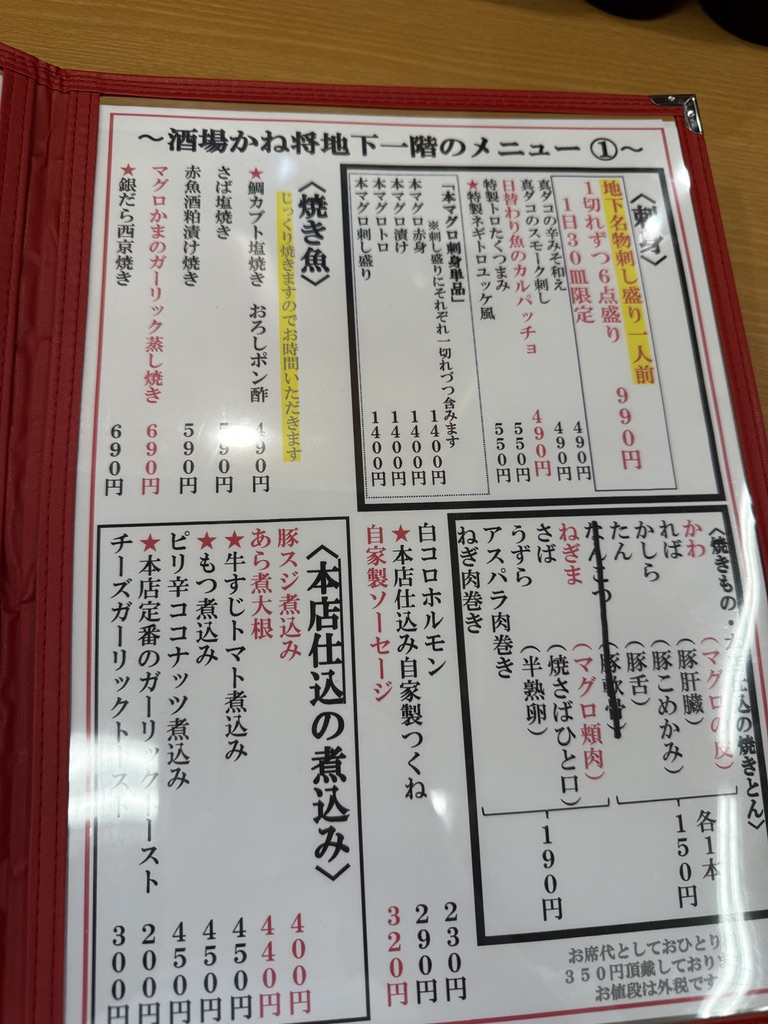 ～酒場かね将地下一階のメニュー①～
〈刺身〉
地下名物刺し盛り一人前 990円
1切れずつ6点盛り
1日30皿限定
真ダコの辛みそ和え 490円
真ダコのスモーク刺し 490円
日替わり魚のカルパッチョ 490円
特製トロたくつまみ 550円
★特製ネギトロユッケ風 550円
「本マグロ刺身単品」
※刺し盛りにそれぞれ一切れづつ含みます
本マグロ赤身 1400円
本マグロ漬け 1400円
本マグロトロ 1400円
本マグロ刺し盛り 1400円
〈焼き魚〉
じっくり焼きますのでお時間いただきます
★鯛カブト塩焼き おろしポン酢 490円
さば塩焼き 590円
赤魚酒粕漬け焼き 590円
マグロかまのガーリック蒸し焼き 690円
★銀だら西京焼き 690円
〈焼きもの・仕込の焼きとん〉
かわ (マグロの皮)
ればー (豚肝臓)
かしら (豚こめかみ)
たん (豚舌)
なんこつ (豚軟骨)
各1本
150円
ねぎま (マグロ頬肉)
さば (焼さばひと口)
うずら (半熟卵)
アスパラ肉巻き
ねぎ肉巻き
190円
白コロホルモン 230円
★本店仕込み自家製つくね 290円
自家製ソーセージ 320円
〈本店仕込の煮込み〉
豚スジ煮込み 400円
あら煮大根 440円
★牛すじトマト煮込み 450円
★もつ煮込み 450円
ピリ辛ココナッツ煮込み 450円
★本店定番のガーリックトースト 200円
チーズガーリックトースト 300円
お席代としておひとり
350円頂戴しており
お値段は外税です